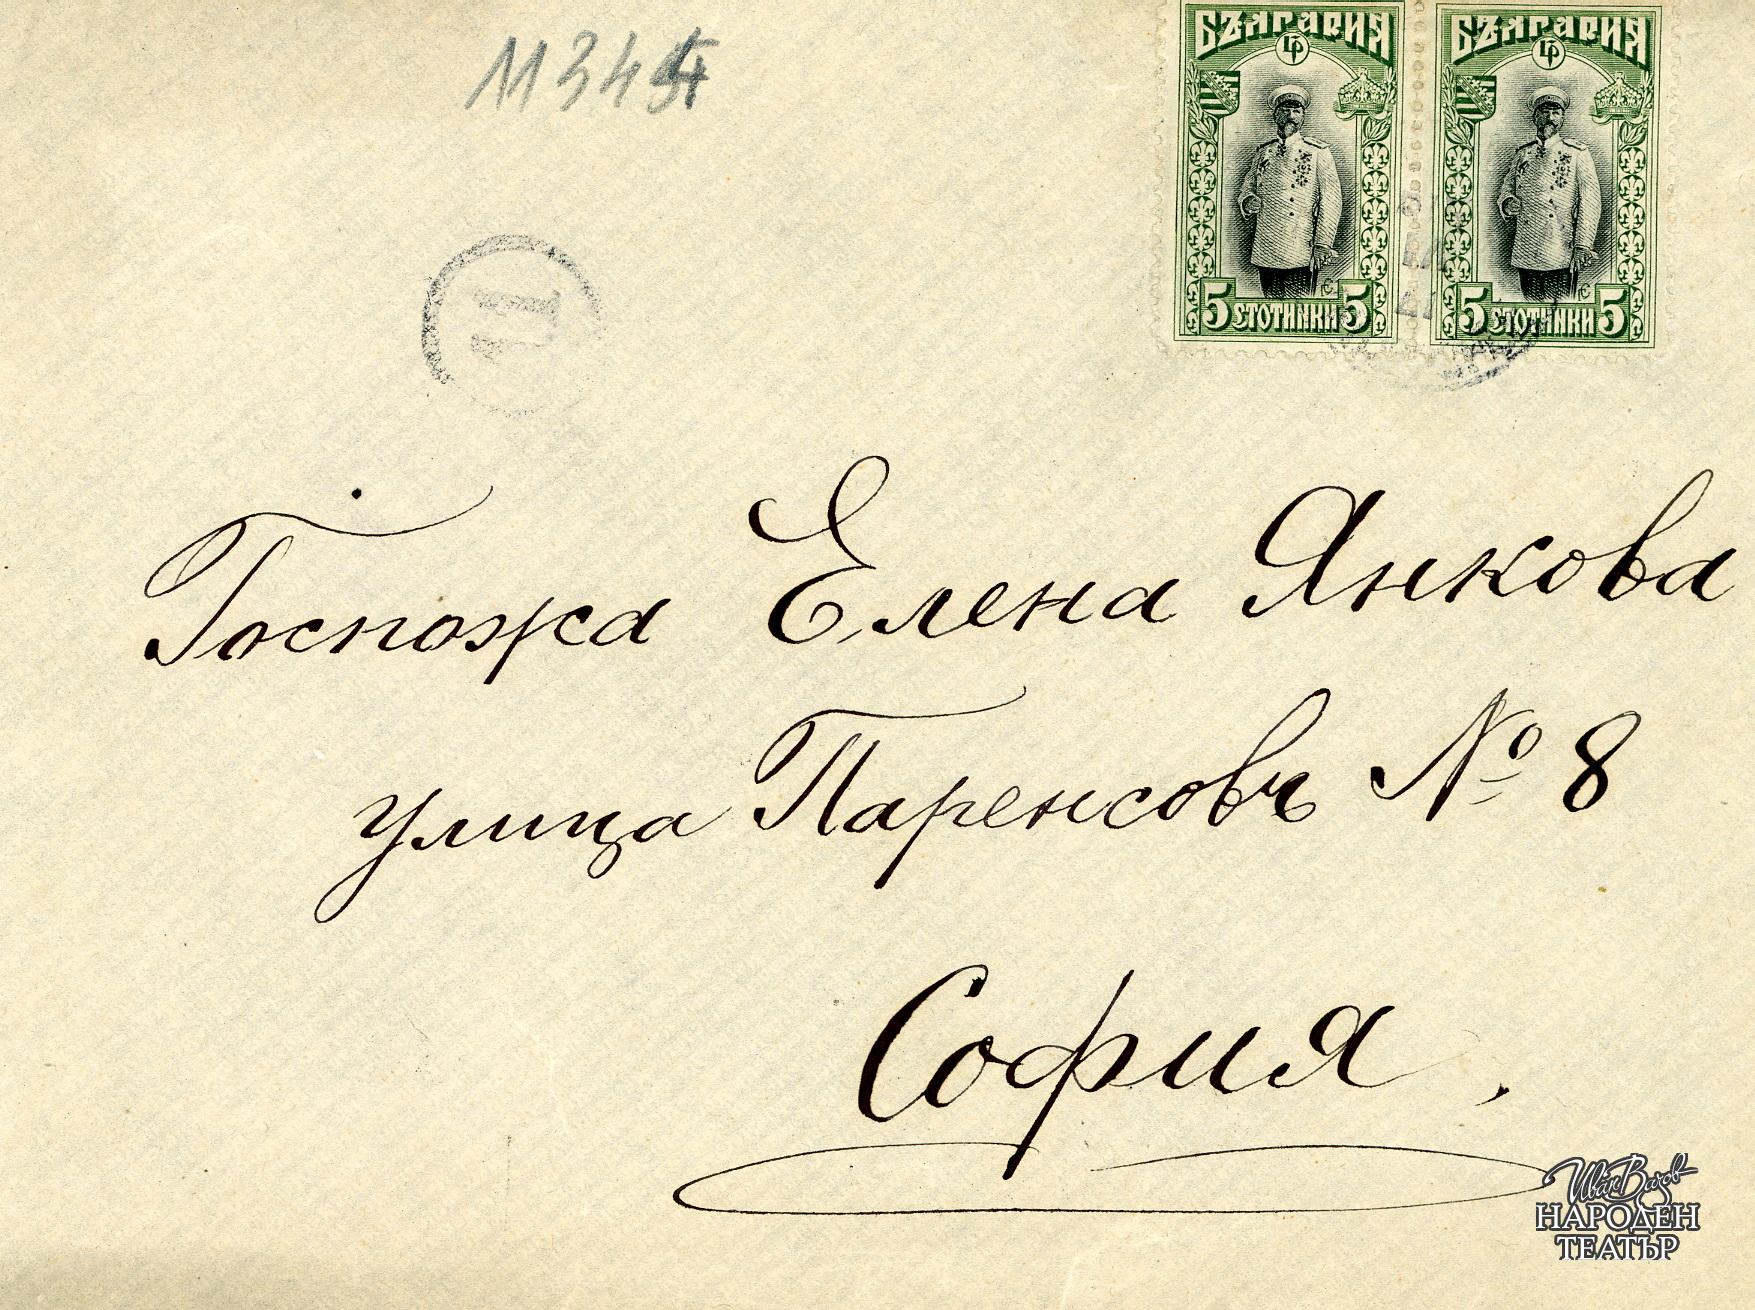 БЪЛГАРИЯ БЪЛГАРИЯ
5 СТОТИНКИ 5 5 СТОТИНКИ 5
Госпожа Елена Янкова
улица Паренсовъ № 8
София.
Иван Вазов
НАРОДЕН
ТЕАТЪР